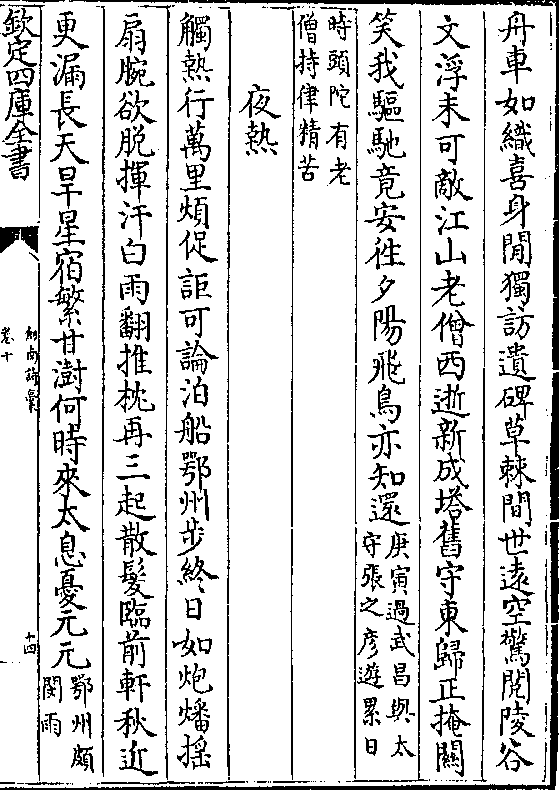 舟車如織喜身閒獨訪遺碑草棘間世逺空驚閲陵谷
文浮未可敵江山老僧西逝新成塔舊守東歸正掩闗
笑我驅馳竟安徃夕陽飛鳥亦知還庚寅過武昌與太
守張之彦遊累日
時頭陀有老
僧持律精苦
夜熱
觸熱行萬里煩促詎可論泊船鄂州步終日如炮燔揺
扇腕欲脱揮汗白雨翻推枕再三起散髮臨前軒秋近
更漏長天旱星宿繁甘澍何時來太息憂元元鄂州頗
閔雨
欽定四庫全書
劍南詩稾
卷十
十四